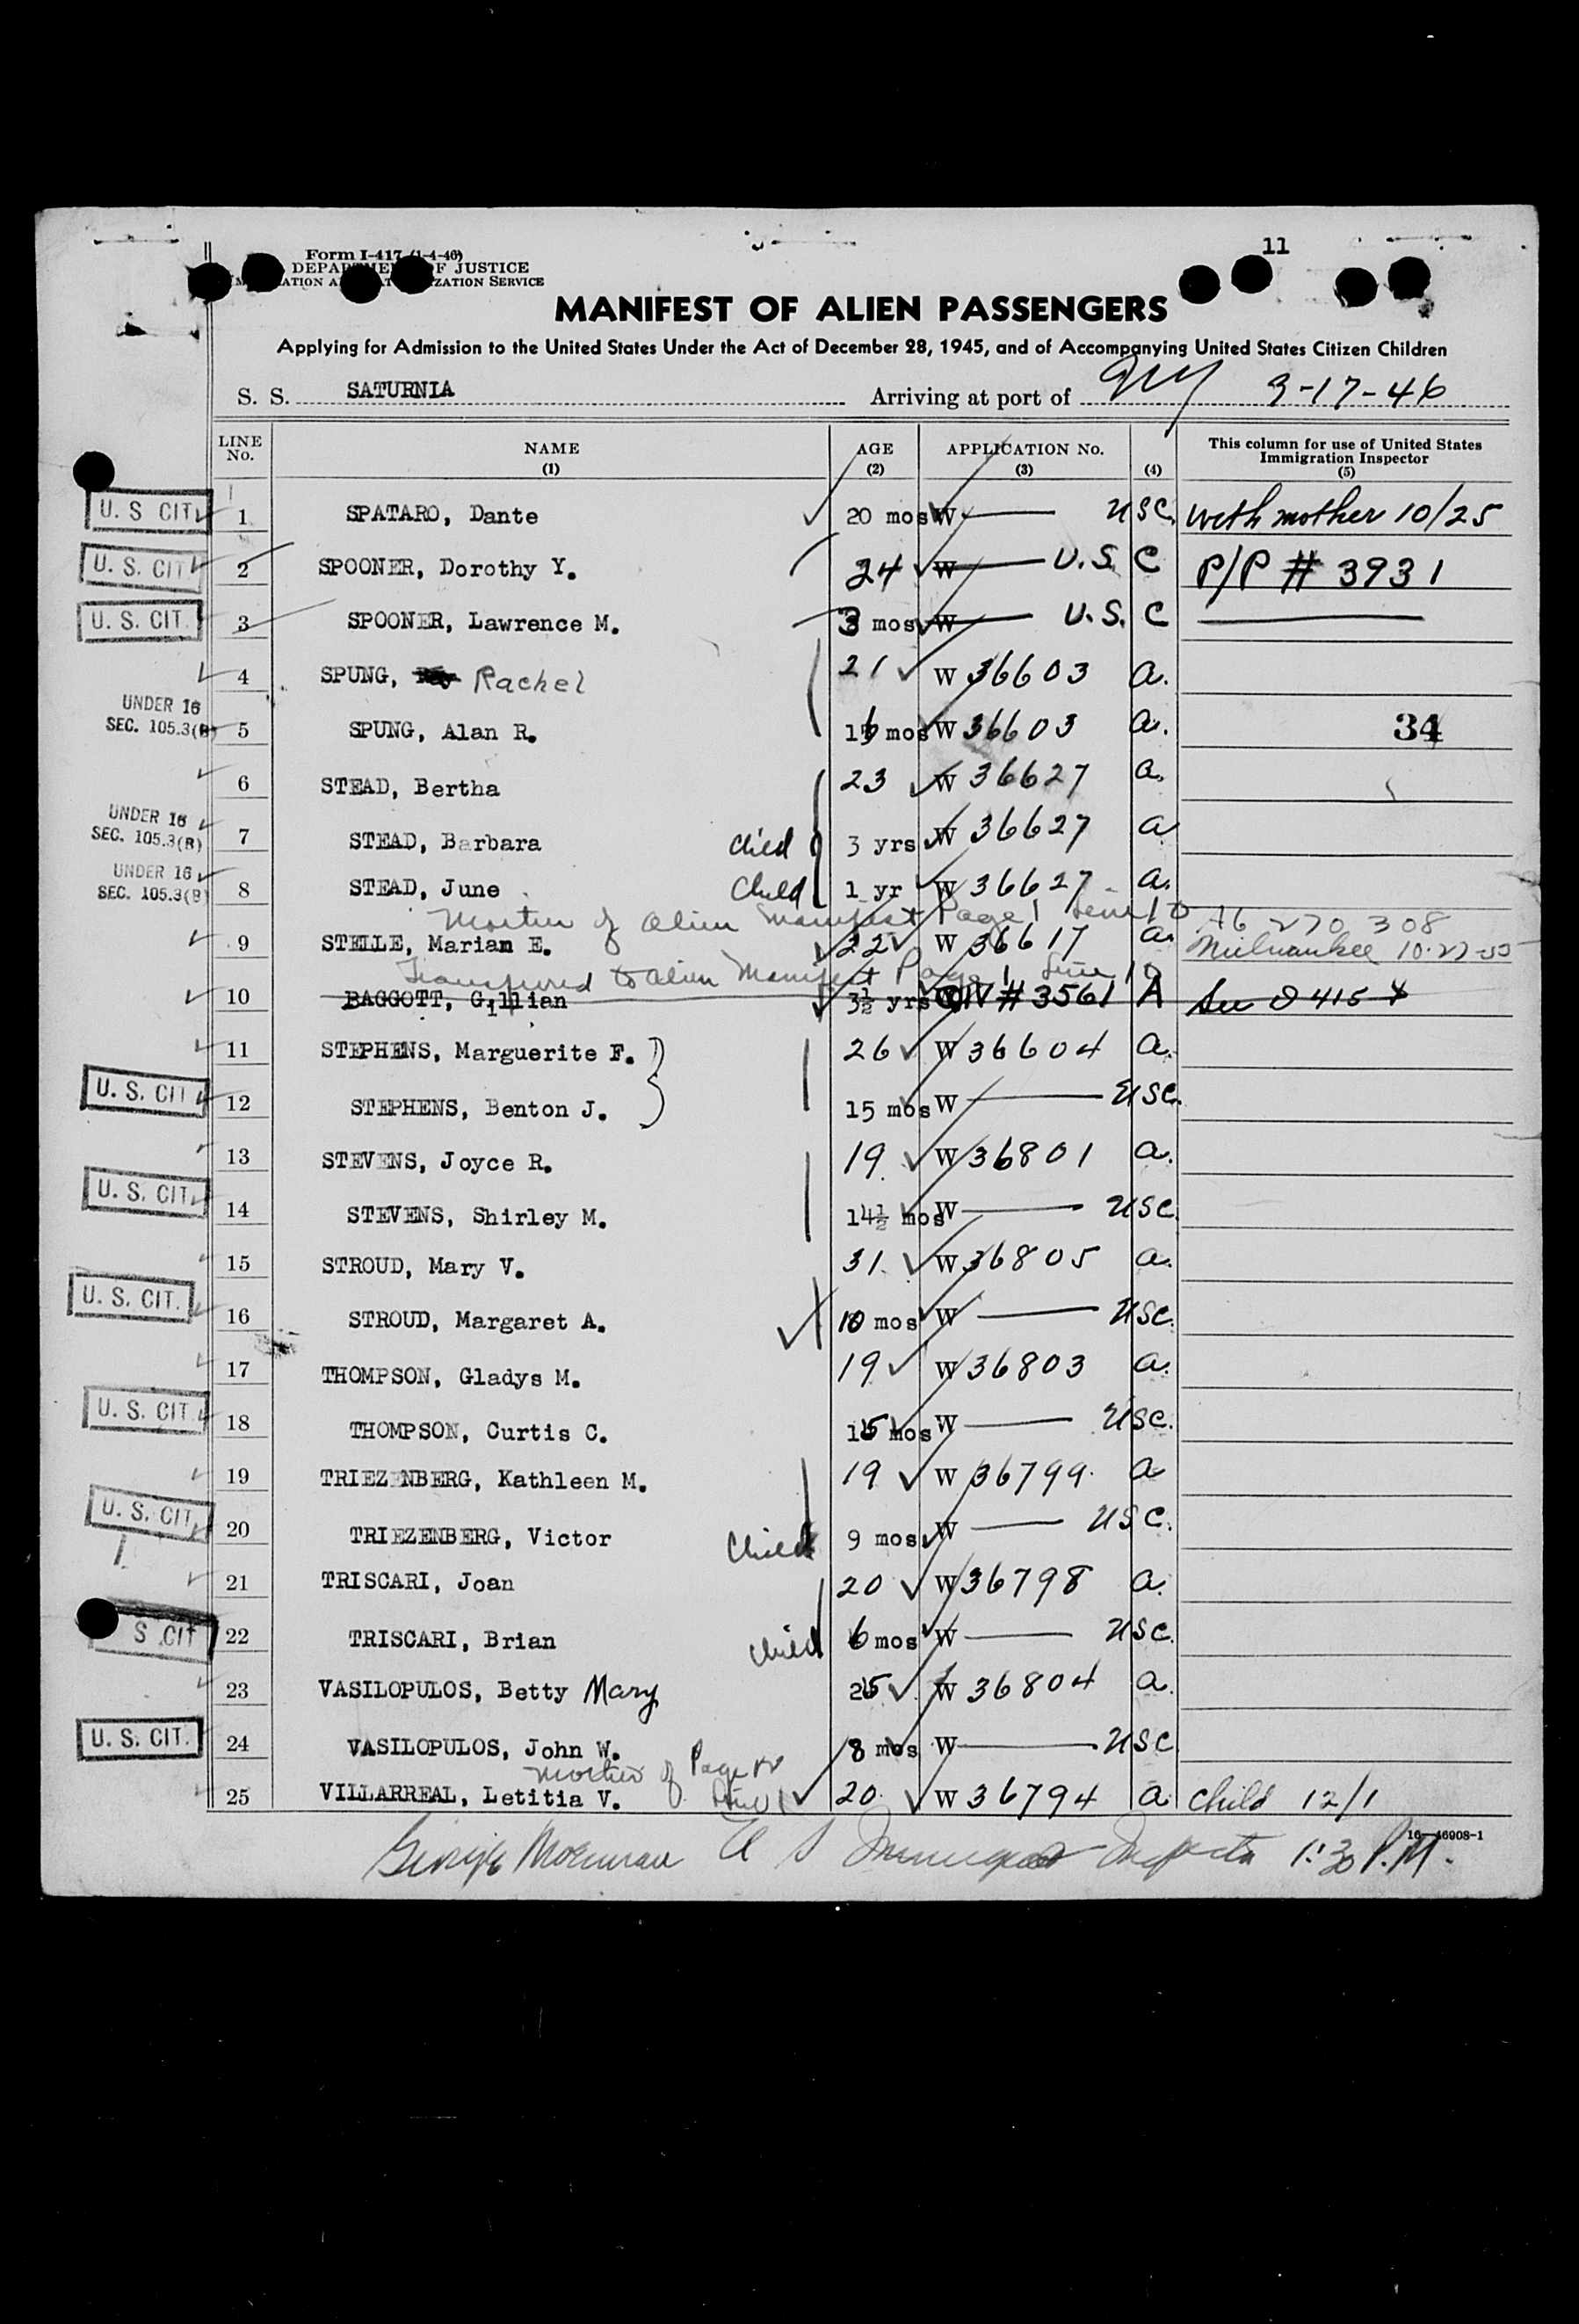 11
Form I-417 (1-4-46)
DEPARTMENT OF JUSTICE
IMMIGRATION AND NATURALIZATION SERVICE
MANIFEST OF ALIEN PASSENGERS
Applying for Admission to the United States Under the Act of December 28, 1945, and of Accompanying United States Citizen Children
S. S. SATURNIA Arriving at port of NY 3-17-46
LINE No. NAME (1) AGE (2) APPLICATION No. (3) (4) This column for use of United States Immigration Inspector (5)
U. S. CIT. 1 SPATARO, Dante 20 mos W USC. with mother 10/25
U. S. CIT. 2 SPOONER, Dorothy Y. 24 W U.S. C P/P # 3931
U. S. CIT. 3 SPOONER, Lawrence M. 3 mos W U.S. C
4 SPUNG, Rachel 21 W 36603 a.
UNDER 16 SEC. 105.3(B) 5 SPUNG, Alan R. 16 mos W 36603 a. 34
6 STEAD, Bertha 23 W 36627 a.
UNDER 16 SEC. 105.3(B) 7 STEAD, Barbara child 3 yrs W 36627 a
UNDER 16 SEC. 105.3(B) 8 STEAD, June Child 1 yr W 36627 a.
Mother of alien Manifest Page 1 Line 10 A6 270 308
9 STELLE, Marian E. 22 W 36617 a. Milwaukee 10-27-55
Transferred to alien Manifest Page 1 Line 10
10 BAGGOTT, Gillian 3½ yrs QIV # 3561 A See I 415
11 STEPHENS, Marguerite F. 26 W 36604 a.
U. S. CIT 12 STEPHENS, Benton J. 15 mos W USC.
13 STEVENS, Joyce R. 19 W 36801 a.
U. S. CIT. 14 STEVENS, Shirley M. 14½ mos W USC.
15 STROUD, Mary V. 31 W 36805 a.
U. S. CIT. 16 STROUD, Margaret A. 10 mos W USC.
17 THOMPSON, Gladys M. 19 W 36803 a.
U. S. CIT. 18 THOMPSON, Curtis C. 15 mos W USC.
19 TRIEZENBERG, Kathleen M. 19 W 36799 a
U. S. CIT. 20 TRIEZENBERG, Victor Child 9 mos W USC.
21 TRISCARI, Joan 20 W 36798 a.
S. CIT 22 TRISCARI, Brian child 6 mos W USC.
23 VASILOPULOS, Betty Mary 25 W 36804 a.
U. S. CIT. 24 VASILOPULOS, John W. 8 mos W USC
Mother of Page Line 1
25 VILLARREAL, Letitia V. 20 W 36794 a child 12/1
16-46908-1
George U S Immigrant Inspector 1:30 P.M.